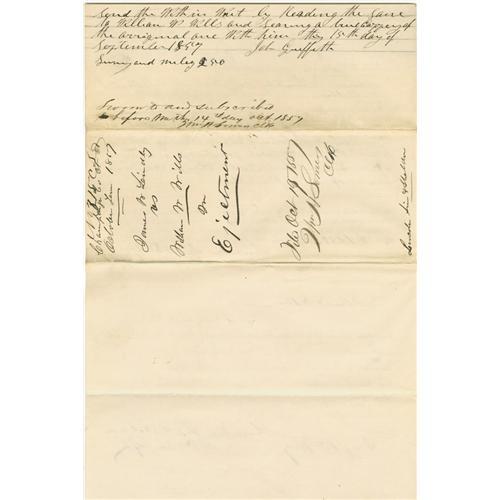 Send the Within Writ by Reading the Same
to William W. Wills and Leaving a true coppy of
the orriginal one With him this 15th day of
September 1857 Job Griffeth
Serving and milag 2.50
Sworn to and subscribed
before me the 14 day Oct 1857
Clk
Champaign Co
October Term 1857
James W.
vs
William W Wills
In
Ejectment
File Oct 19 1857
Clk
Lincoln